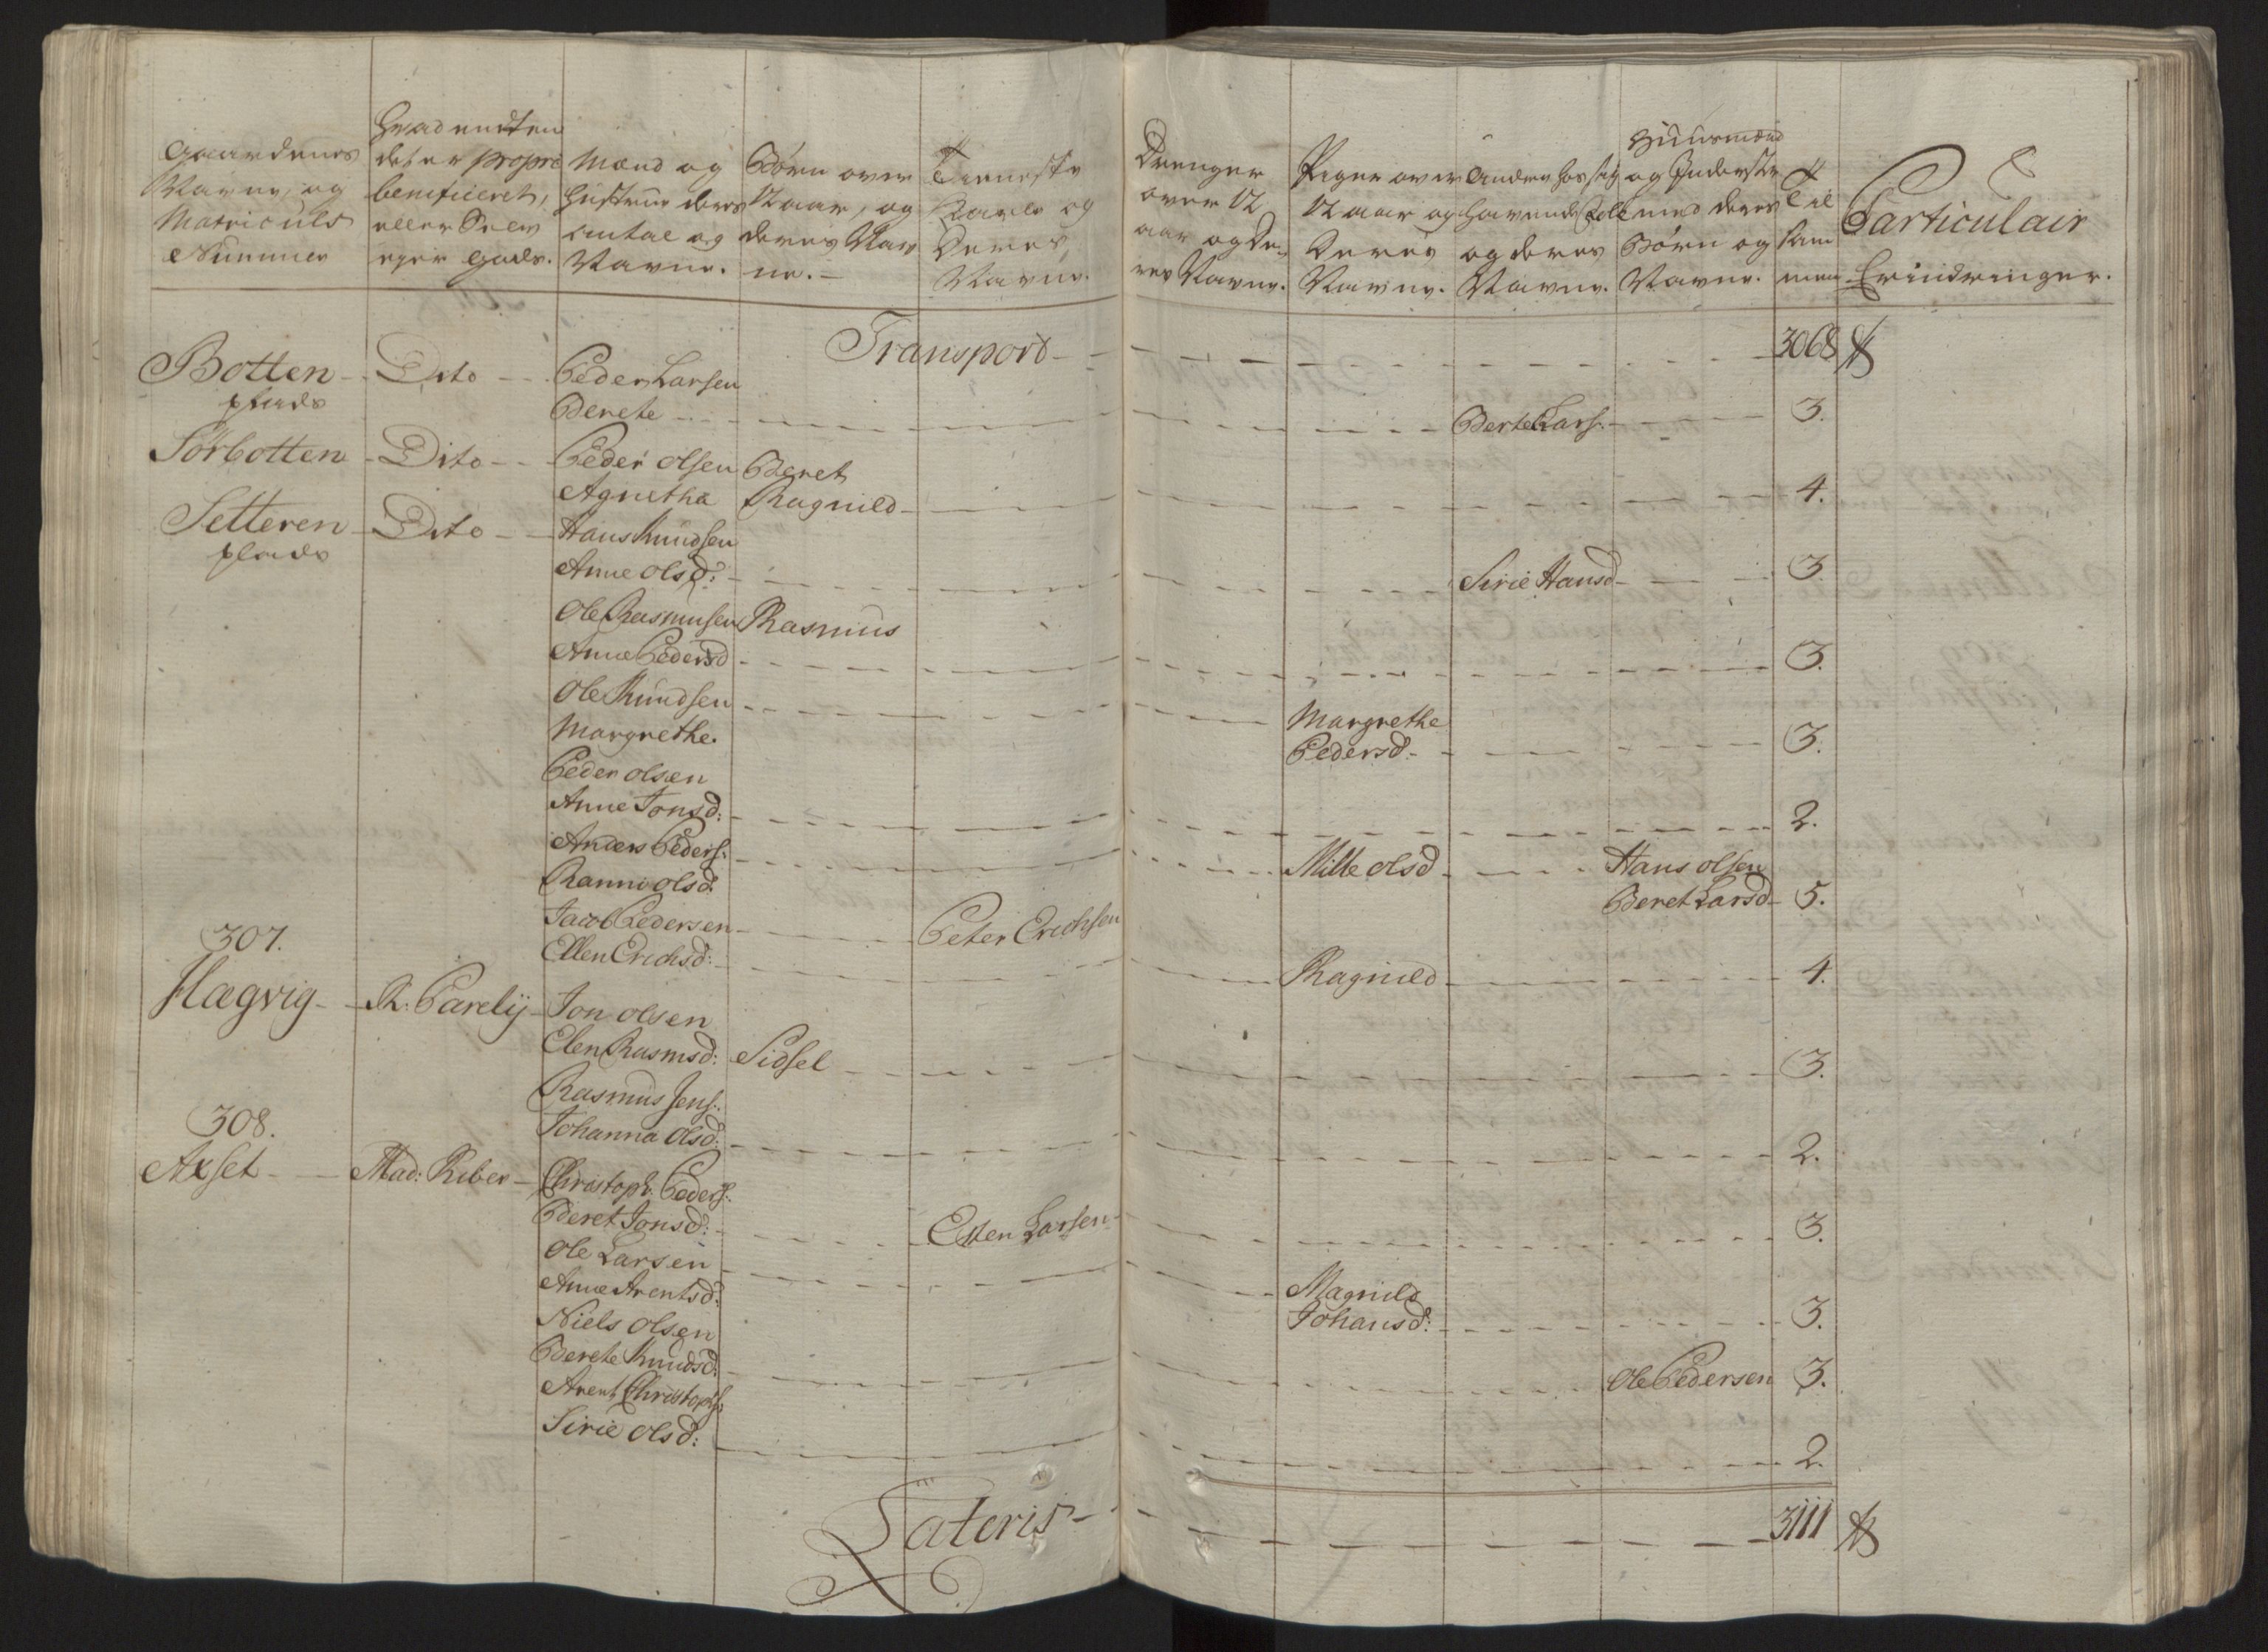 Gaardenes
Navne, og
Matriculs
Nummer
Hvad endten
det er propre
beneficeret,
eller Selv
ejer gods.
Mænd og
Hustrue deres
antal og
Navne.
Børn over
12 aar, og
deres Nav
ne.
Tieneste
Karle og
Deres
Navne.
Drenge
over 12
aar og De-
res Navne.
Piger over
12 aar og
Deres
Navne.
Andre hos sig
havende Folk
og deres
Navne.
Huusmænd
og Inderster
med deres
Børn og
Navne.
Til
sam
men
Particulair
Erindringer.
Transport - - - 3068
Botten - Dito - Peder Larsen
plads Berete - - - Berte Lars: - - 3.
Sørbotten - Dito - Peder Olsen Beret
Agnetha Ragnild - - - 4.
Setteren - Dito - Hans Knudsen
plads Anne Olsd: - - - Sirie Hansd - - 3.
Ole Rasmusen Rasmus
Anne Pedersd - - - 3.
Ole Knudsen - - - Margrethe
Margrethe. Pedersd: - - - 3.
Peder Olsen
Anne Jonsd: - - - 2.
Anders Peders: - - - Mille Olsd - - - Hans Olsen
Ranni Olsd: Beret Larsd - 5.
Jacob Pedersen - - - Peter Erichsen
307. Ellen Erichsd: - - - Ragnild - - - 4.
Hægvig - R: Parelij - Jon Olsen
Elen Rasmsd: Sidsel - - - 3.
Rasmus Jens:
308. Johanna Olsd: - - - 2.
Axset - Mad: Riber - Christoph: Peders:
Beret Jonsd: - - - Esten Larsen - - - 3.
Ole Larsen - - - Magnild
Anne Arentsd: Johansd: - - - 3.
Niels Olsen
Berete Knudsd: - - - Ole Pedersen 3.
Arent Christophs:
Sirie Olsd: - - - 2.
Lateris - - - 3111